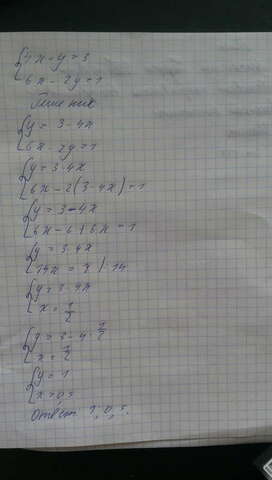 {4x - y = 3
{6x - 2y = 1
Решение
{y = 3 - 4x
{6x - 2y = 1
{y = 3 - 4x
{6x - 2(3 - 4x) = 1
{y = 3 - 4x
{6x - 6 + 6x = 1
{y = 3 - 4x
{14x = 7 | : 14
{y = 3 - 4x
{x = 1/2
{y = 3 - 4 · 1/2
{x = 1/2
{y = 1
Ответ